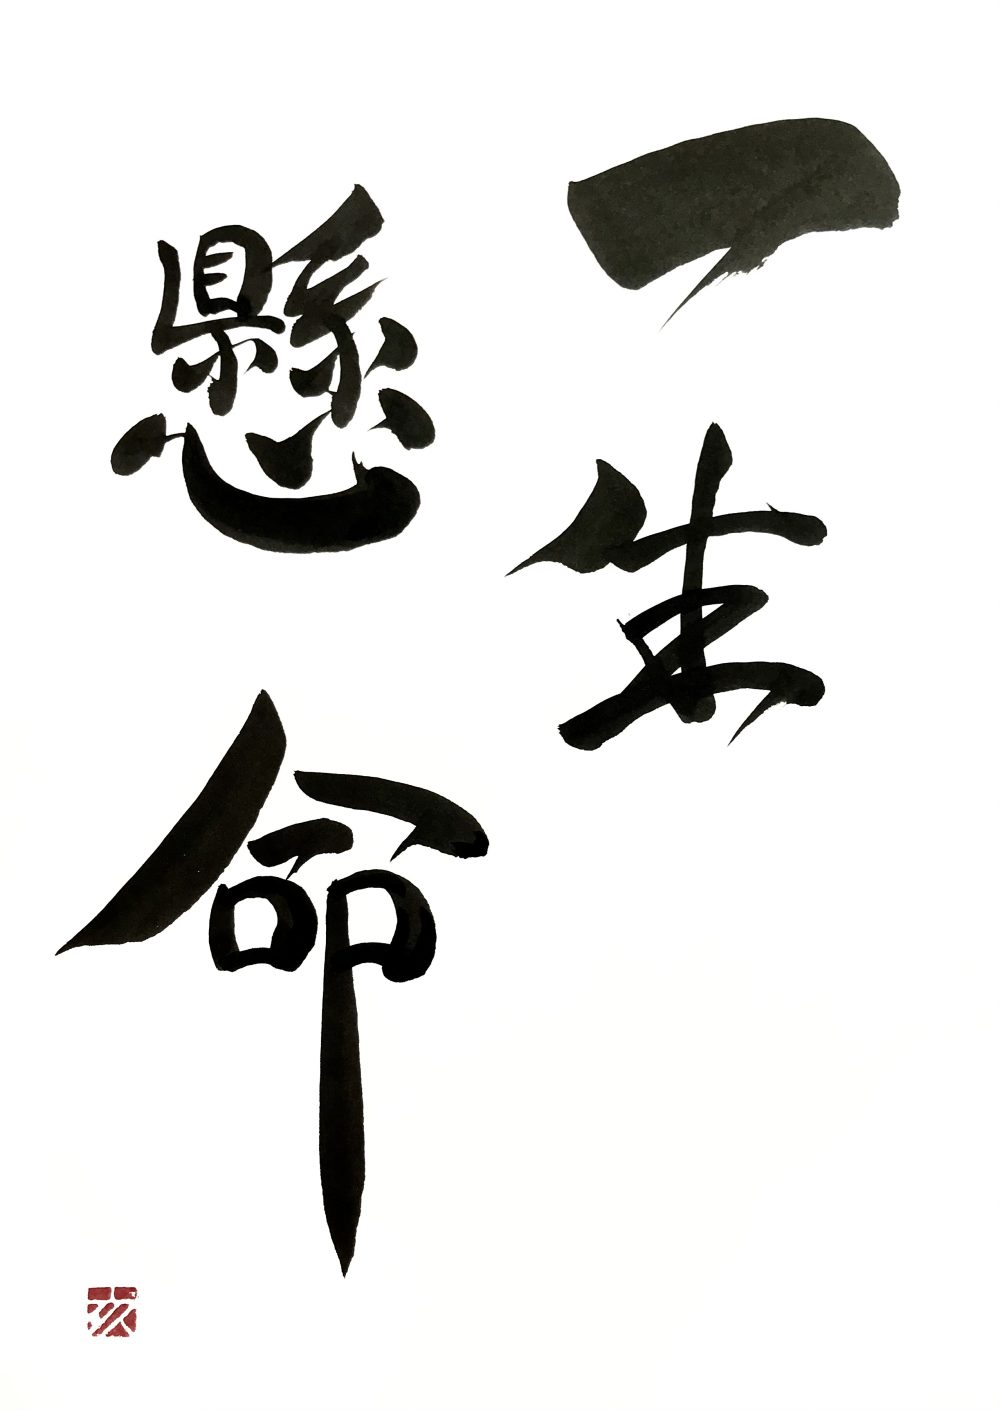 一生
懸命